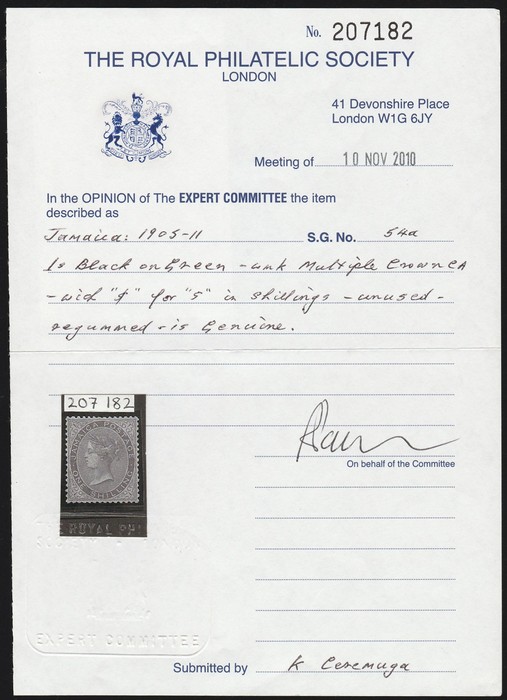 No. 207182
THE ROYAL PHILATELIC SOCIETY
LONDON
41 Devonshire Place
London W1G 6JY
Meeting of 10 NOV 2010
In the OPINION of The EXPERT COMMITTEE the item
described as
Jamaica: 1905-11 S.G. No. 54a
1s Black on Green - wmk Multiple Crown CA
- with "$" for "S" in shillings - unused -
regummed - is Genuine.
207 182
JAMAICA POSTAGE
ONE SHILLING
ROYAL PH
On behalf of the Committee
EXPERT COMMITTEE
Submitted by K Ceremuga